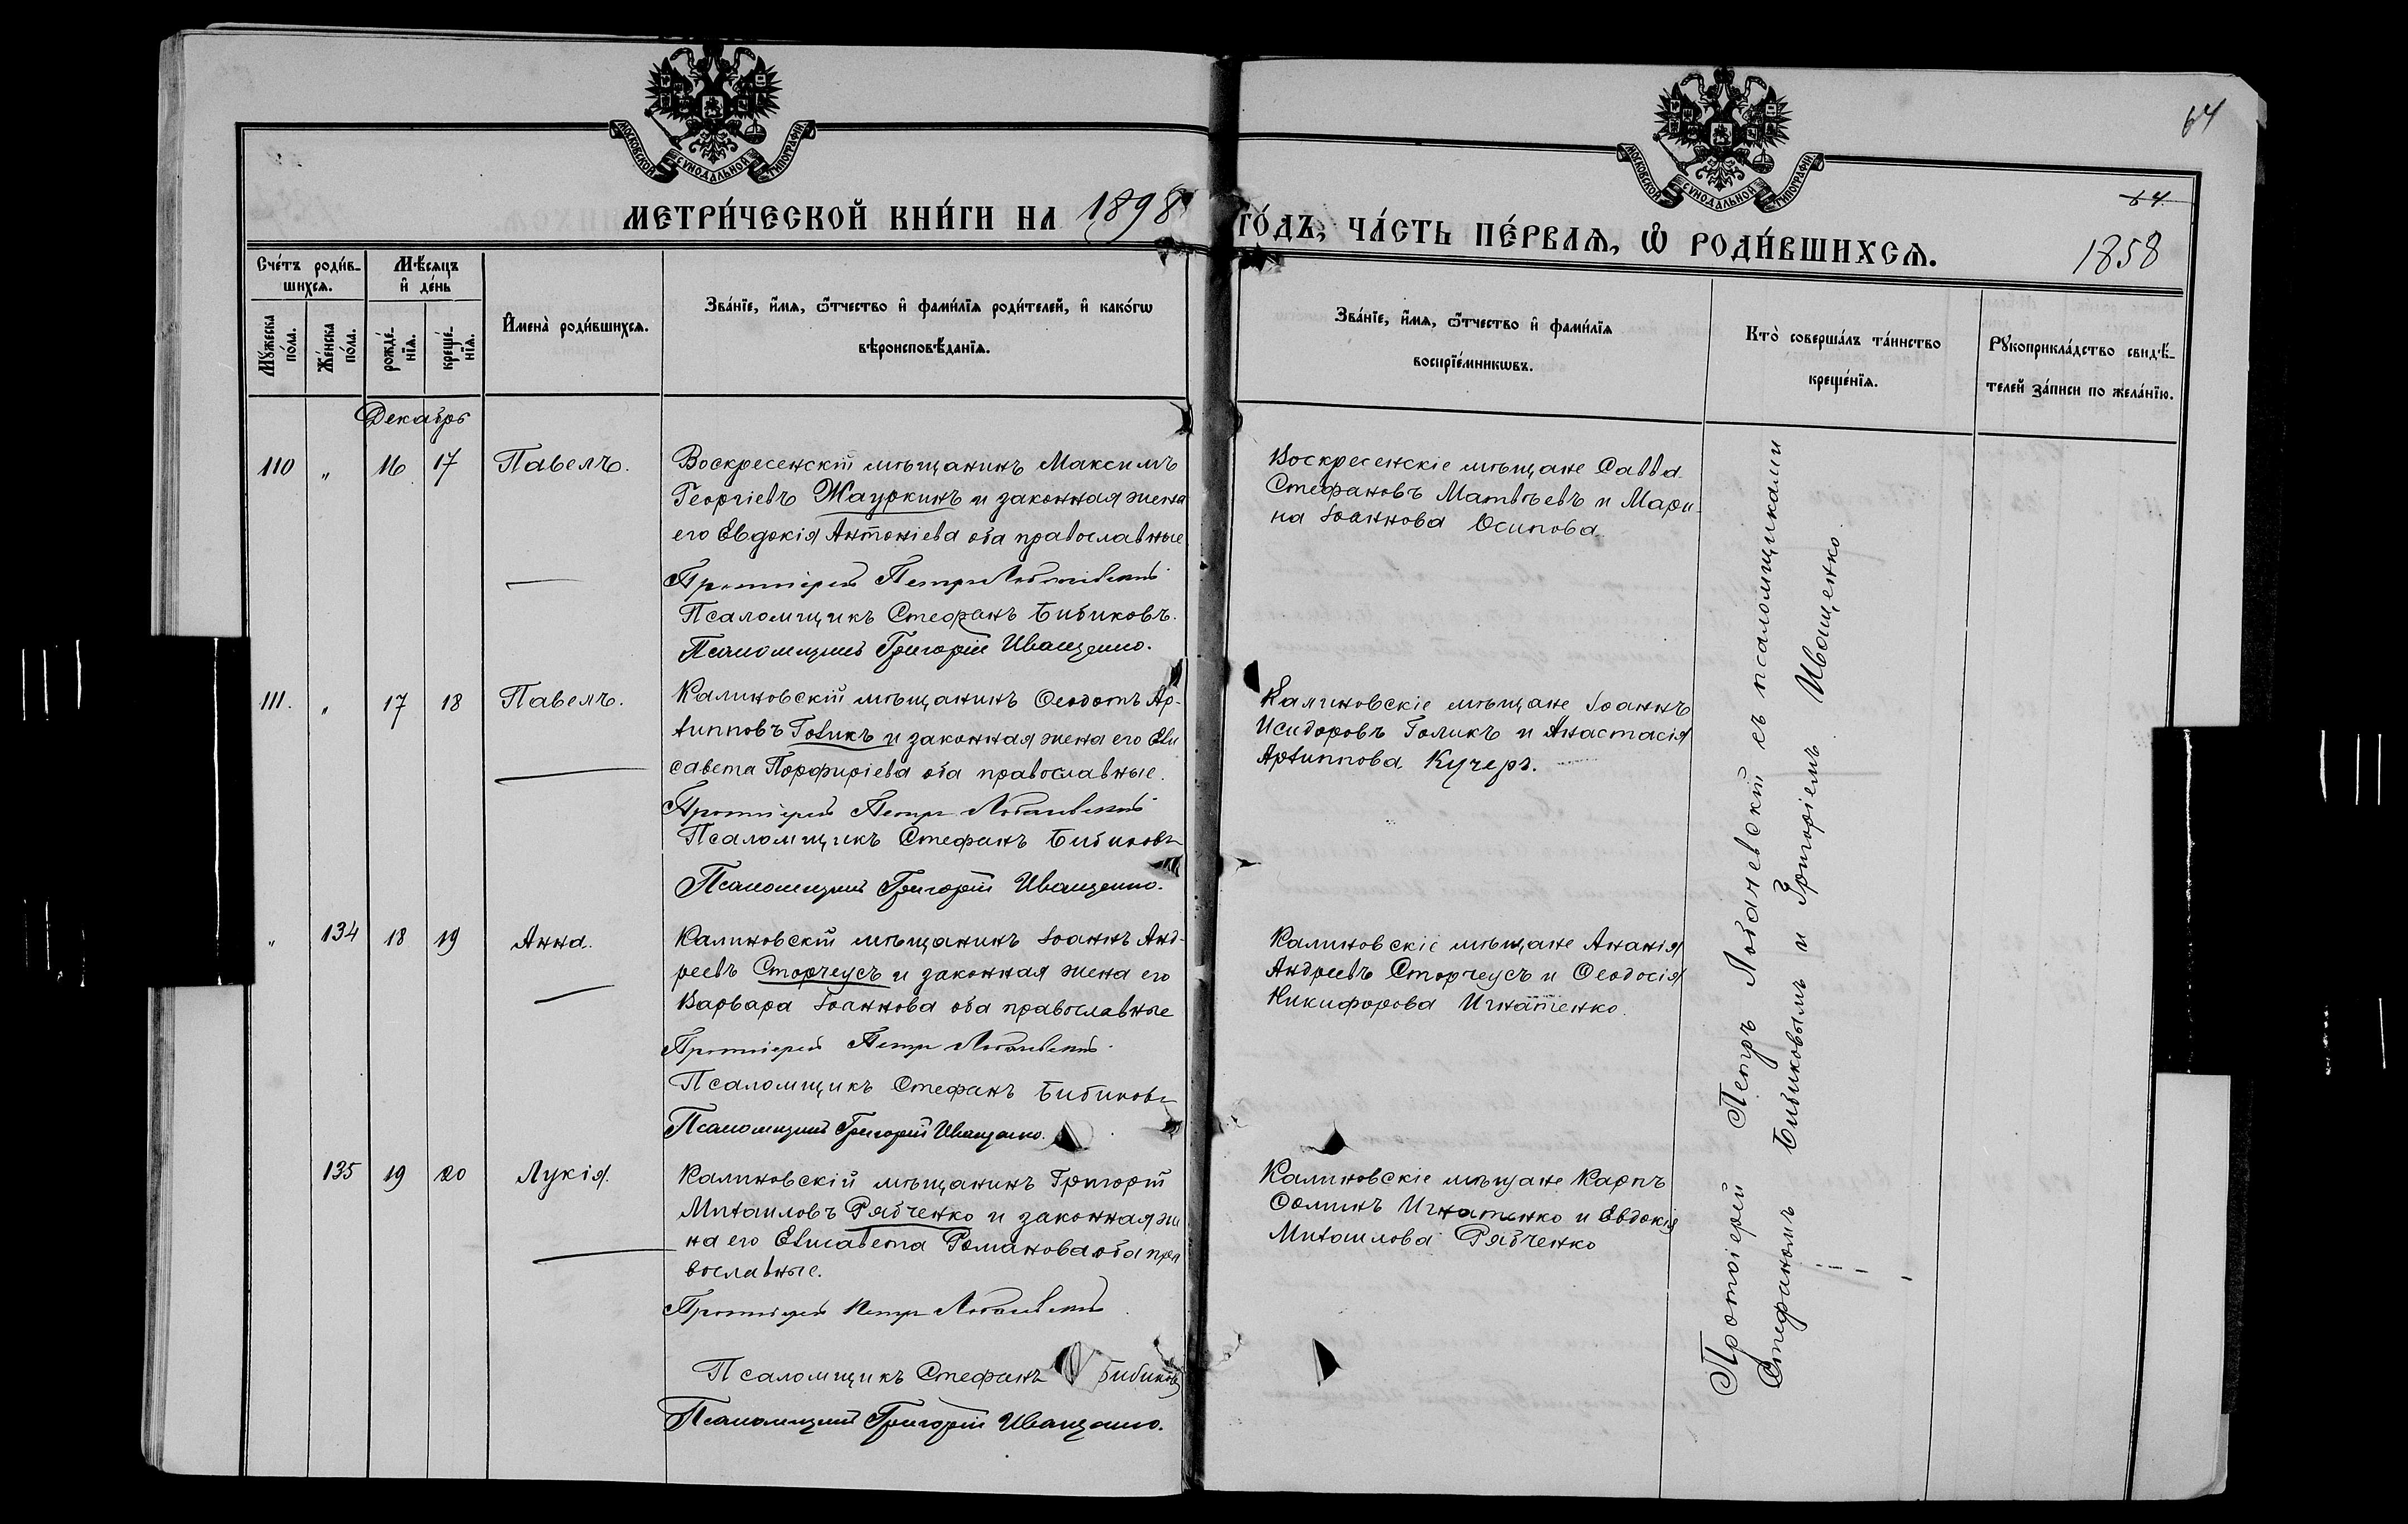 64
МОСКОВСКОЙ СУНОДАЛЬНОЙ ТИПОГРАФІИ
МОСКОВСКОЙ СУНОДАЛЬНОЙ ТИПОГРАФІИ
64.
МЕТРИ́ЧЕСКОЙ КНИ́ГИ НА 1898 ГО́ДЪ, ЧА́СТЬ ПЕ́РВАѦ, Ѡ҆ РОДИ́ВШИХСѦ.
1858
Сче́тъ роди́в-
шихсѧ.
Мѣ́сѧцъ
и҆ де́нь
Мꙋ́жеска
по́ла.
Же́нска
по́ла.
рожде́-
нїѧ.
креще́-
нїѧ.
И҆мена̀ роди́вшихсѧ.
Зва́нїе, и҆́мѧ, ѻ҆́тчество и҆ фами́лїѧ роди́телей, и҆ како́гѡ
вѣроисповѣ́данїѧ.
Зва́нїе, и҆́мѧ, ѻ҆́тчество и҆ фами́лїѧ
воспрїе́мникѡвъ.
Кто̀ соверша́лъ та́инство
креще́нїѧ.
Рꙋкоприкла́дство свидѣ́-
телей за́писи по жела́нїю.
Декабрь
110 " 16 17 Павелъ.
Воскресенскій мѣщанинъ Максимъ
Георгіевъ Жауркинъ и законная жена
его Евдокія Антоніева оба православные
Протоіерей Петръ Лобачевскій
Псаломщикъ Стефанъ Бибиковъ.
Псаломщикъ Григорій Иващенко.
Воскресенскіе мѣщане Савва
Стефановъ Матвѣевъ и Мари-
на Іоаннова Осипова.
111. " 17 18 Павелъ.
Калиновскій мѣщанинъ Ѳеодотъ Ар-
хипповъ Голикъ и законная жена его Ели
савета Порфиріева оба православные.
Протоіерей Петръ Лобачевскій
Псаломщикъ Стефанъ Бибиковъ
Псаломщикъ Григорій Иващенко.
Калиновскіе мѣщане Іоаннъ
Исидоровъ Голикъ и Анастасія
Архиппова Кучеръ.
" 134 18 19 Анна.
Калиновскій мѣщанинъ Іоаннъ Анд-
реевъ Сторчеусъ и законная жена его
Варвара Іоаннова оба православные
Протоіерей Петръ Лобачевскій
Псаломщикъ Стефанъ Бибиковъ
Псаломщикъ Григорій Иващенко.
Калиновскіе мѣщане Ананія
Андреевъ Сторчеусъ и Ѳеодосія
Никифорова Игнатенко.
135 19 20 Лукія.
Калиновскій мѣщанинъ Григорій
Михаиловъ Рябченко и законная же
на его Елисавета Романова оба пра
вославные.
Протоіерей Петръ Лобачевскій
Псаломщикъ Стефанъ Бибиковъ
Псаломщикъ Григорій Иващенко.
Калиновскіе мѣщане Карпъ
Ѳоминъ Игнатенко и Евдокія
Михаилова Рябченко
Протоіерей Петръ Лобачевскій съ псаломщиками
Стефаномъ Бибиковымъ и Григоріемъ Иващенко